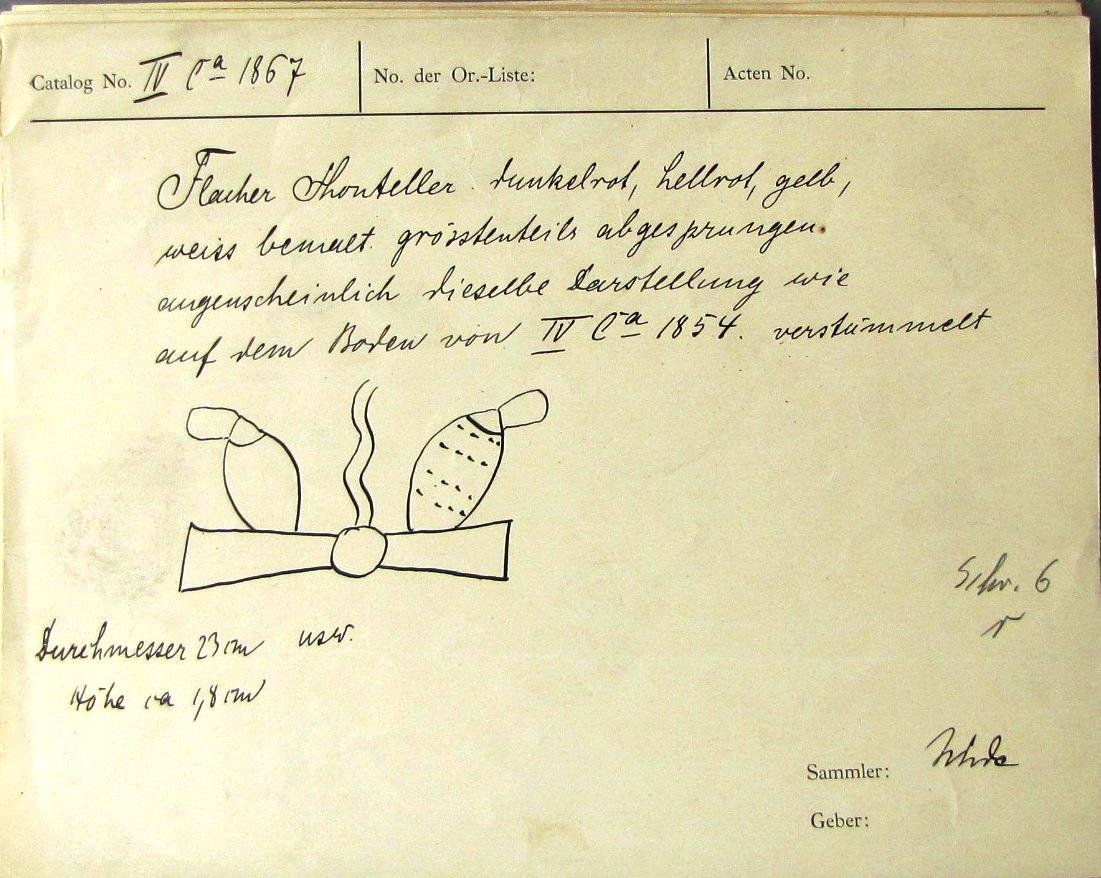 Catalog No. IV Ca 1867
No. der Or.-Liste:
Acten No.
Flacher Thonteller. dunkelrot, hellrot, gelb,
weiss bemalt. grösstenteils abgesprungen.
augenscheinlich dieselbe Darstellung wie
auf dem Boden von IV Ca 1854. verstümmelt
Durchmesser 23 cm usw.
Höhe ca 1,8 cm
Schr. 6
r
Sammler: Uhde
Geber: